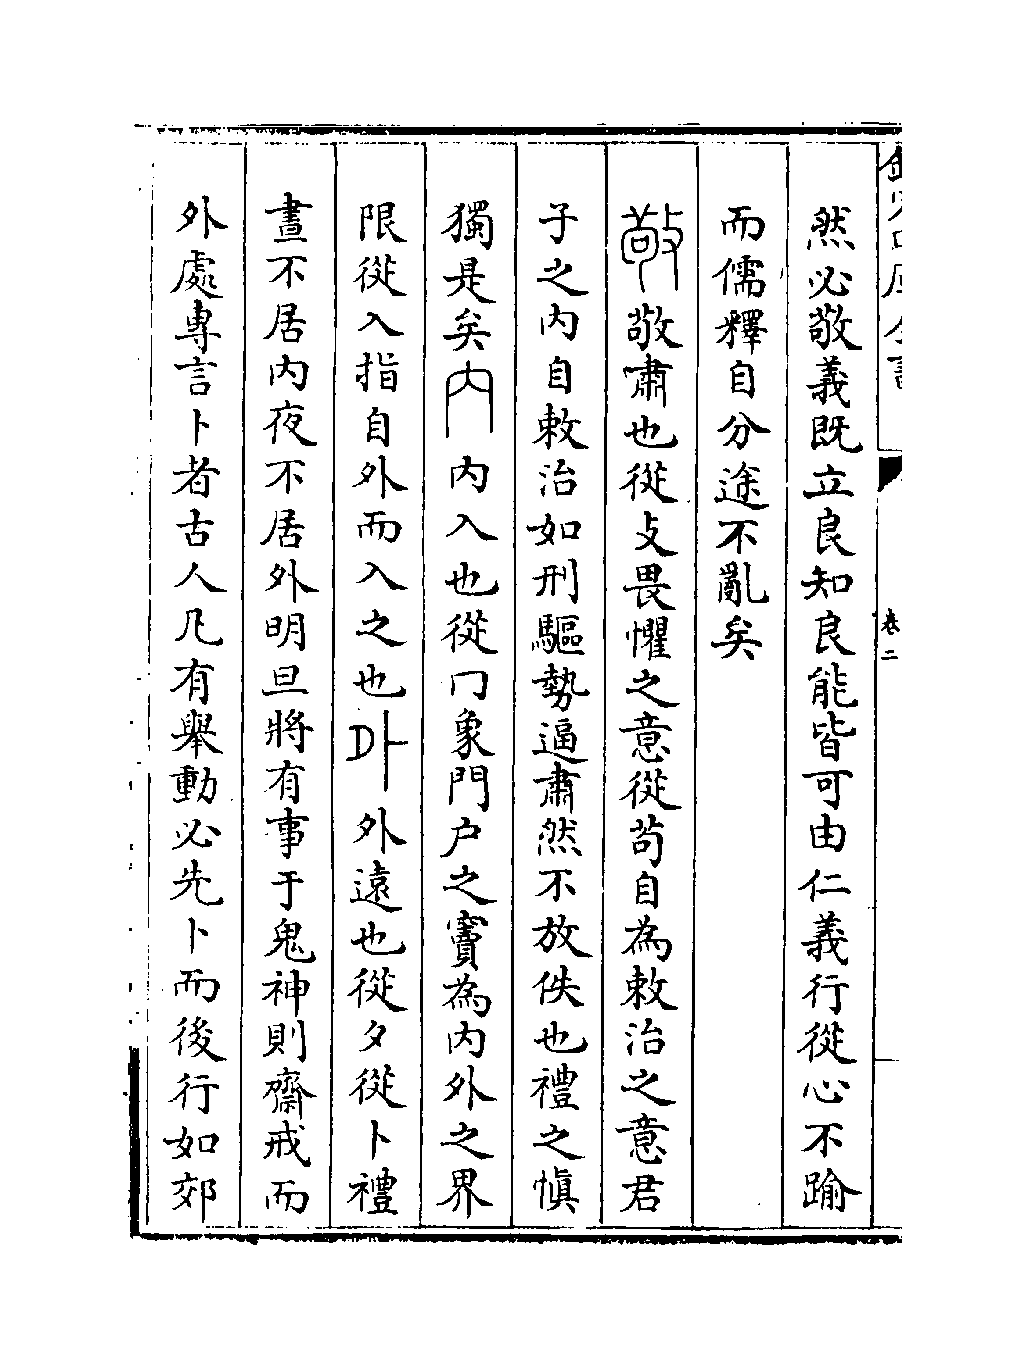 然必敬義既立良知良能皆可由仁義行從心不踰
而儒釋自分途不亂矣
敬敬肅也從攴畏懼之意從茍自為敕治之意君
子之内自敕治如刑驅勢逼肅然不放佚也禮之慎
獨是矣内内入也從冂象門户之竇為内外之界
限從入指自外而入之也外外遠也從夕從卜禮
晝不居内夜不居外明旦將有事于鬼神則齋戒而
外處專言卜者古人凡有舉動必先卜而後行如郊
卷二